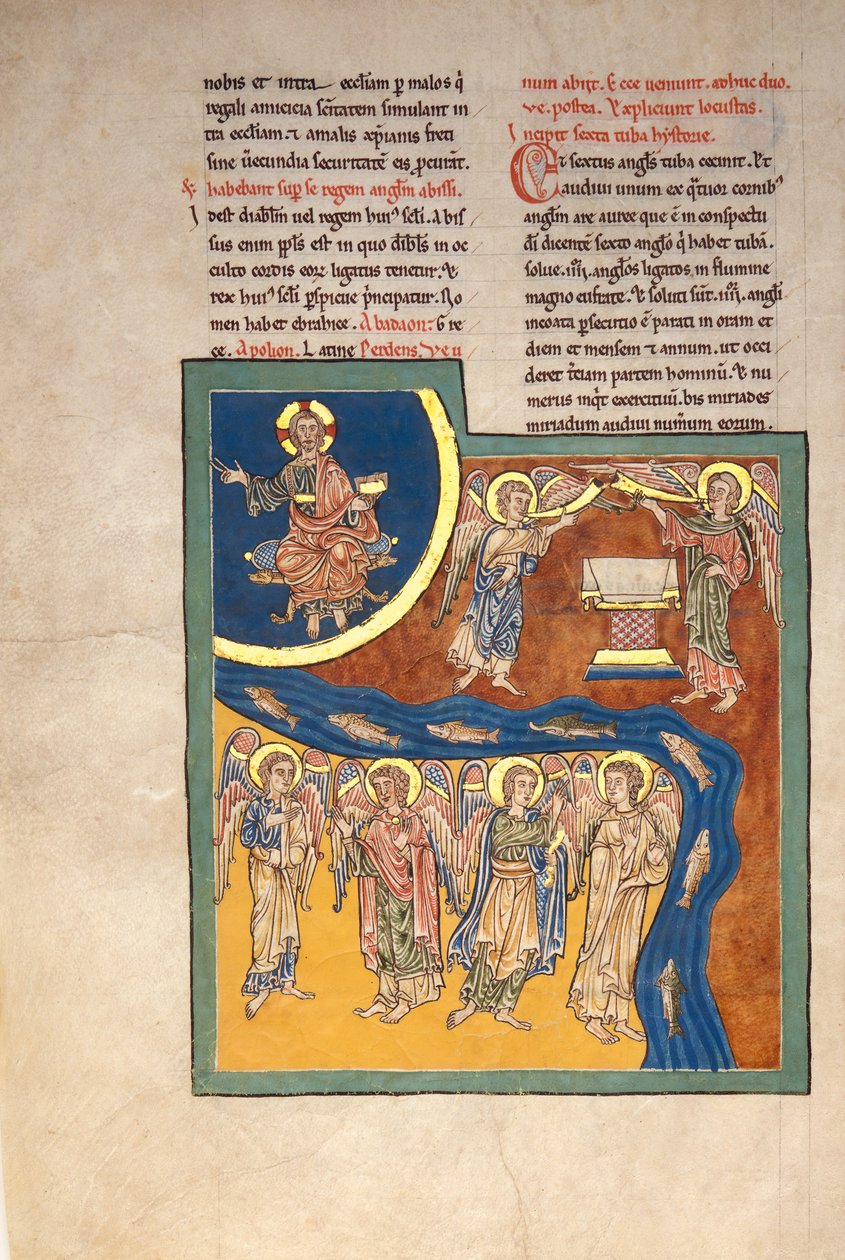 nobis et intra eccl̄iam ꝑ malos q̇
regali amicicia sc̄itatem simulant in
tra eccl̄iam. ⁊ amalis xp̄ianis freti
sine ūecundia securitatē eis ꝓcurāt.
& habebant suꝑ se regem angl̄m abissi.
Idest diabl̄m uel regem huiꝰ sc̄li. Abis
sus enim ppl̄s est in quo dibl̄s in oc
culto cordis eorꝫ ligatus tenetur. Et
rex huiꝰ sc̄li ꝑspicue p̄ncipatur. No
men habet ebrahice. Abadaon: Gre
ce. Apolion. Latine Perdens. Ve u
num abijt. Ecce ueniunt. adhuc duo.
ve. postea. Expliciunt locustas.
Incipit sexta tuba hystorie.
Et sextus angl̄s tuba cecinit. Et
audiui unum ex q̄tuor cornibꝰ
angl̄m are auree que ē in conspectu
dī dicentē sexto angl̄o q̇ habet tubā.
solue .iiijͬ. angl̄os ligatos in flumine
magno eufrate. Et soluti sūt .iiijͬ. angl̄i
incoata ꝑsecutio ē parati in oram et
diem et mensem ⁊ annum. ut occi
deret t̄ciam partem hominū. Et nu
merus inq̄t exercituū. bis miriades
miriadum audiui num̄um eorum.